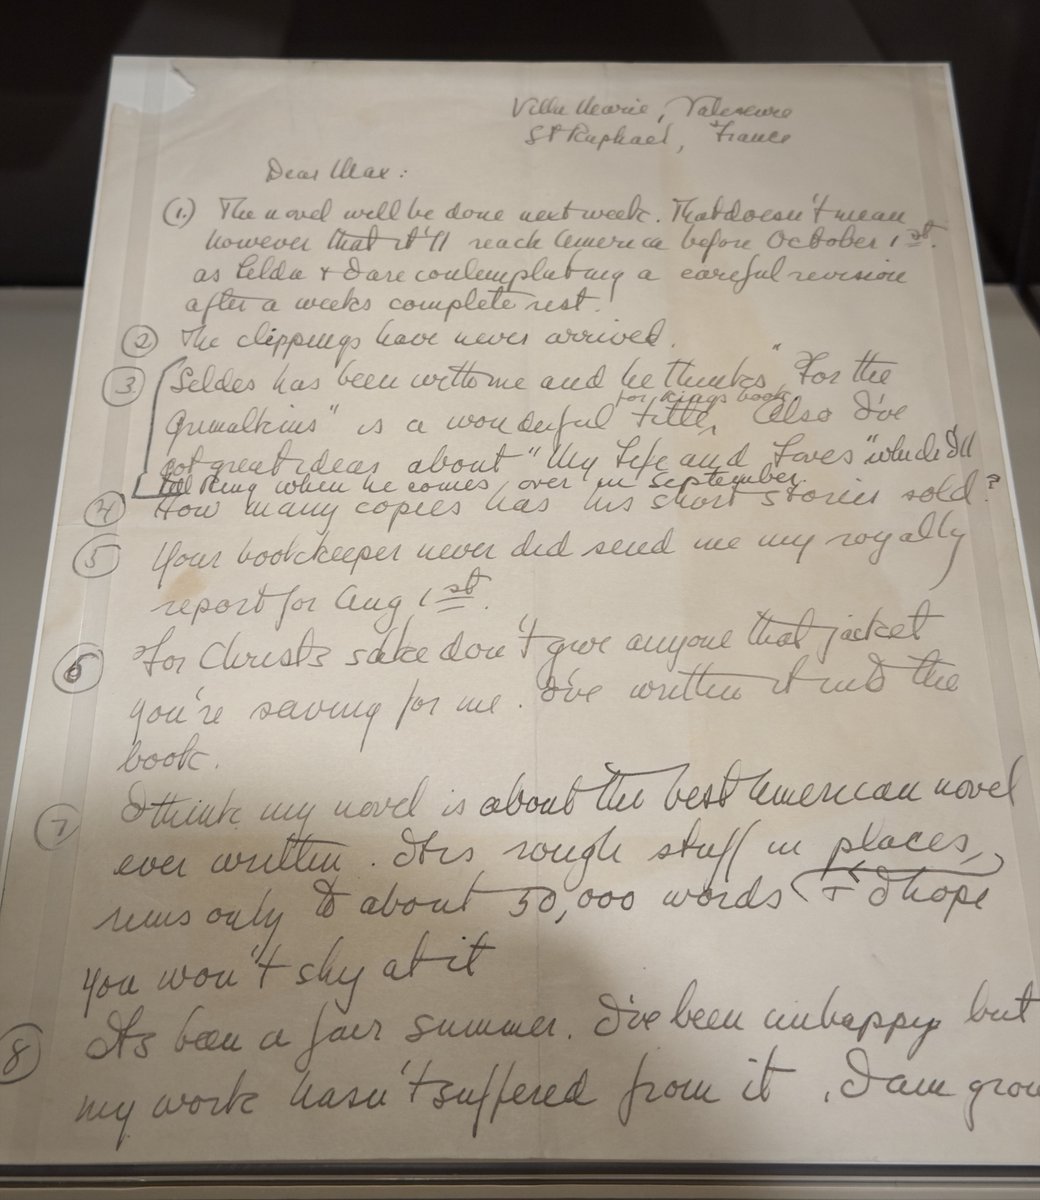 Villa Marie, Valescure
St Raphael, France
Dear Max:
(1.) The novel will be done next week. That doesn't mean
however that it'll reach America before October 1st.
as Zelda + I are contemplating a careful revision
after a weeks complete rest.
(2) The clippings have never arrived.
(3.) Seldes has been with me and he thinks "For the
Grimalkins" is a wonderful title for Rings book. Also I've
got great ideas about "My Life and Loves" which I'll
tell Ring when he comes over in September.
(4) How many copies has his short stories sold?
(5) Your bookkeeper never did send me my royalty
report for Aug 1st.
(6) For Christs sake don't give anyone that jacket
you're saving for me. I've written it into the
book.
(7) I think my novel is about the best American novel
ever written. Its rough stuff in places,
runs only to about 50,000 words + I hope
you won't shy at it
(8) Its been a fair summer. I've been unhappy but
my work hasn't suffered from it. I am grow